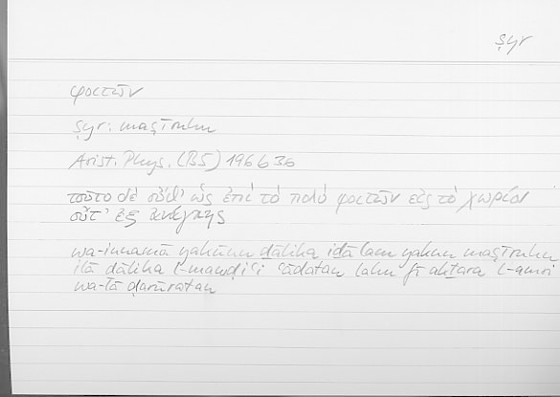 ṣyr
φοιτῶν
ṣyr: maṣīruhu
Arist. Phys. (B5) 196b36
τοῦτο δὲ οὔθ' ὡς ἐπὶ τὸ πολὺ φοιτῶν εἰς τὸ χωρίον
οὔτ' ἐξ ἀνάγκης
wa-innamā yakūnu ḏālika iḏā lam yakun maṣīruhu
ilā ḏālika l-mawḍiʿi ʿādatan lahu fī akṯara l-amri
wa-lā ḍarūratan